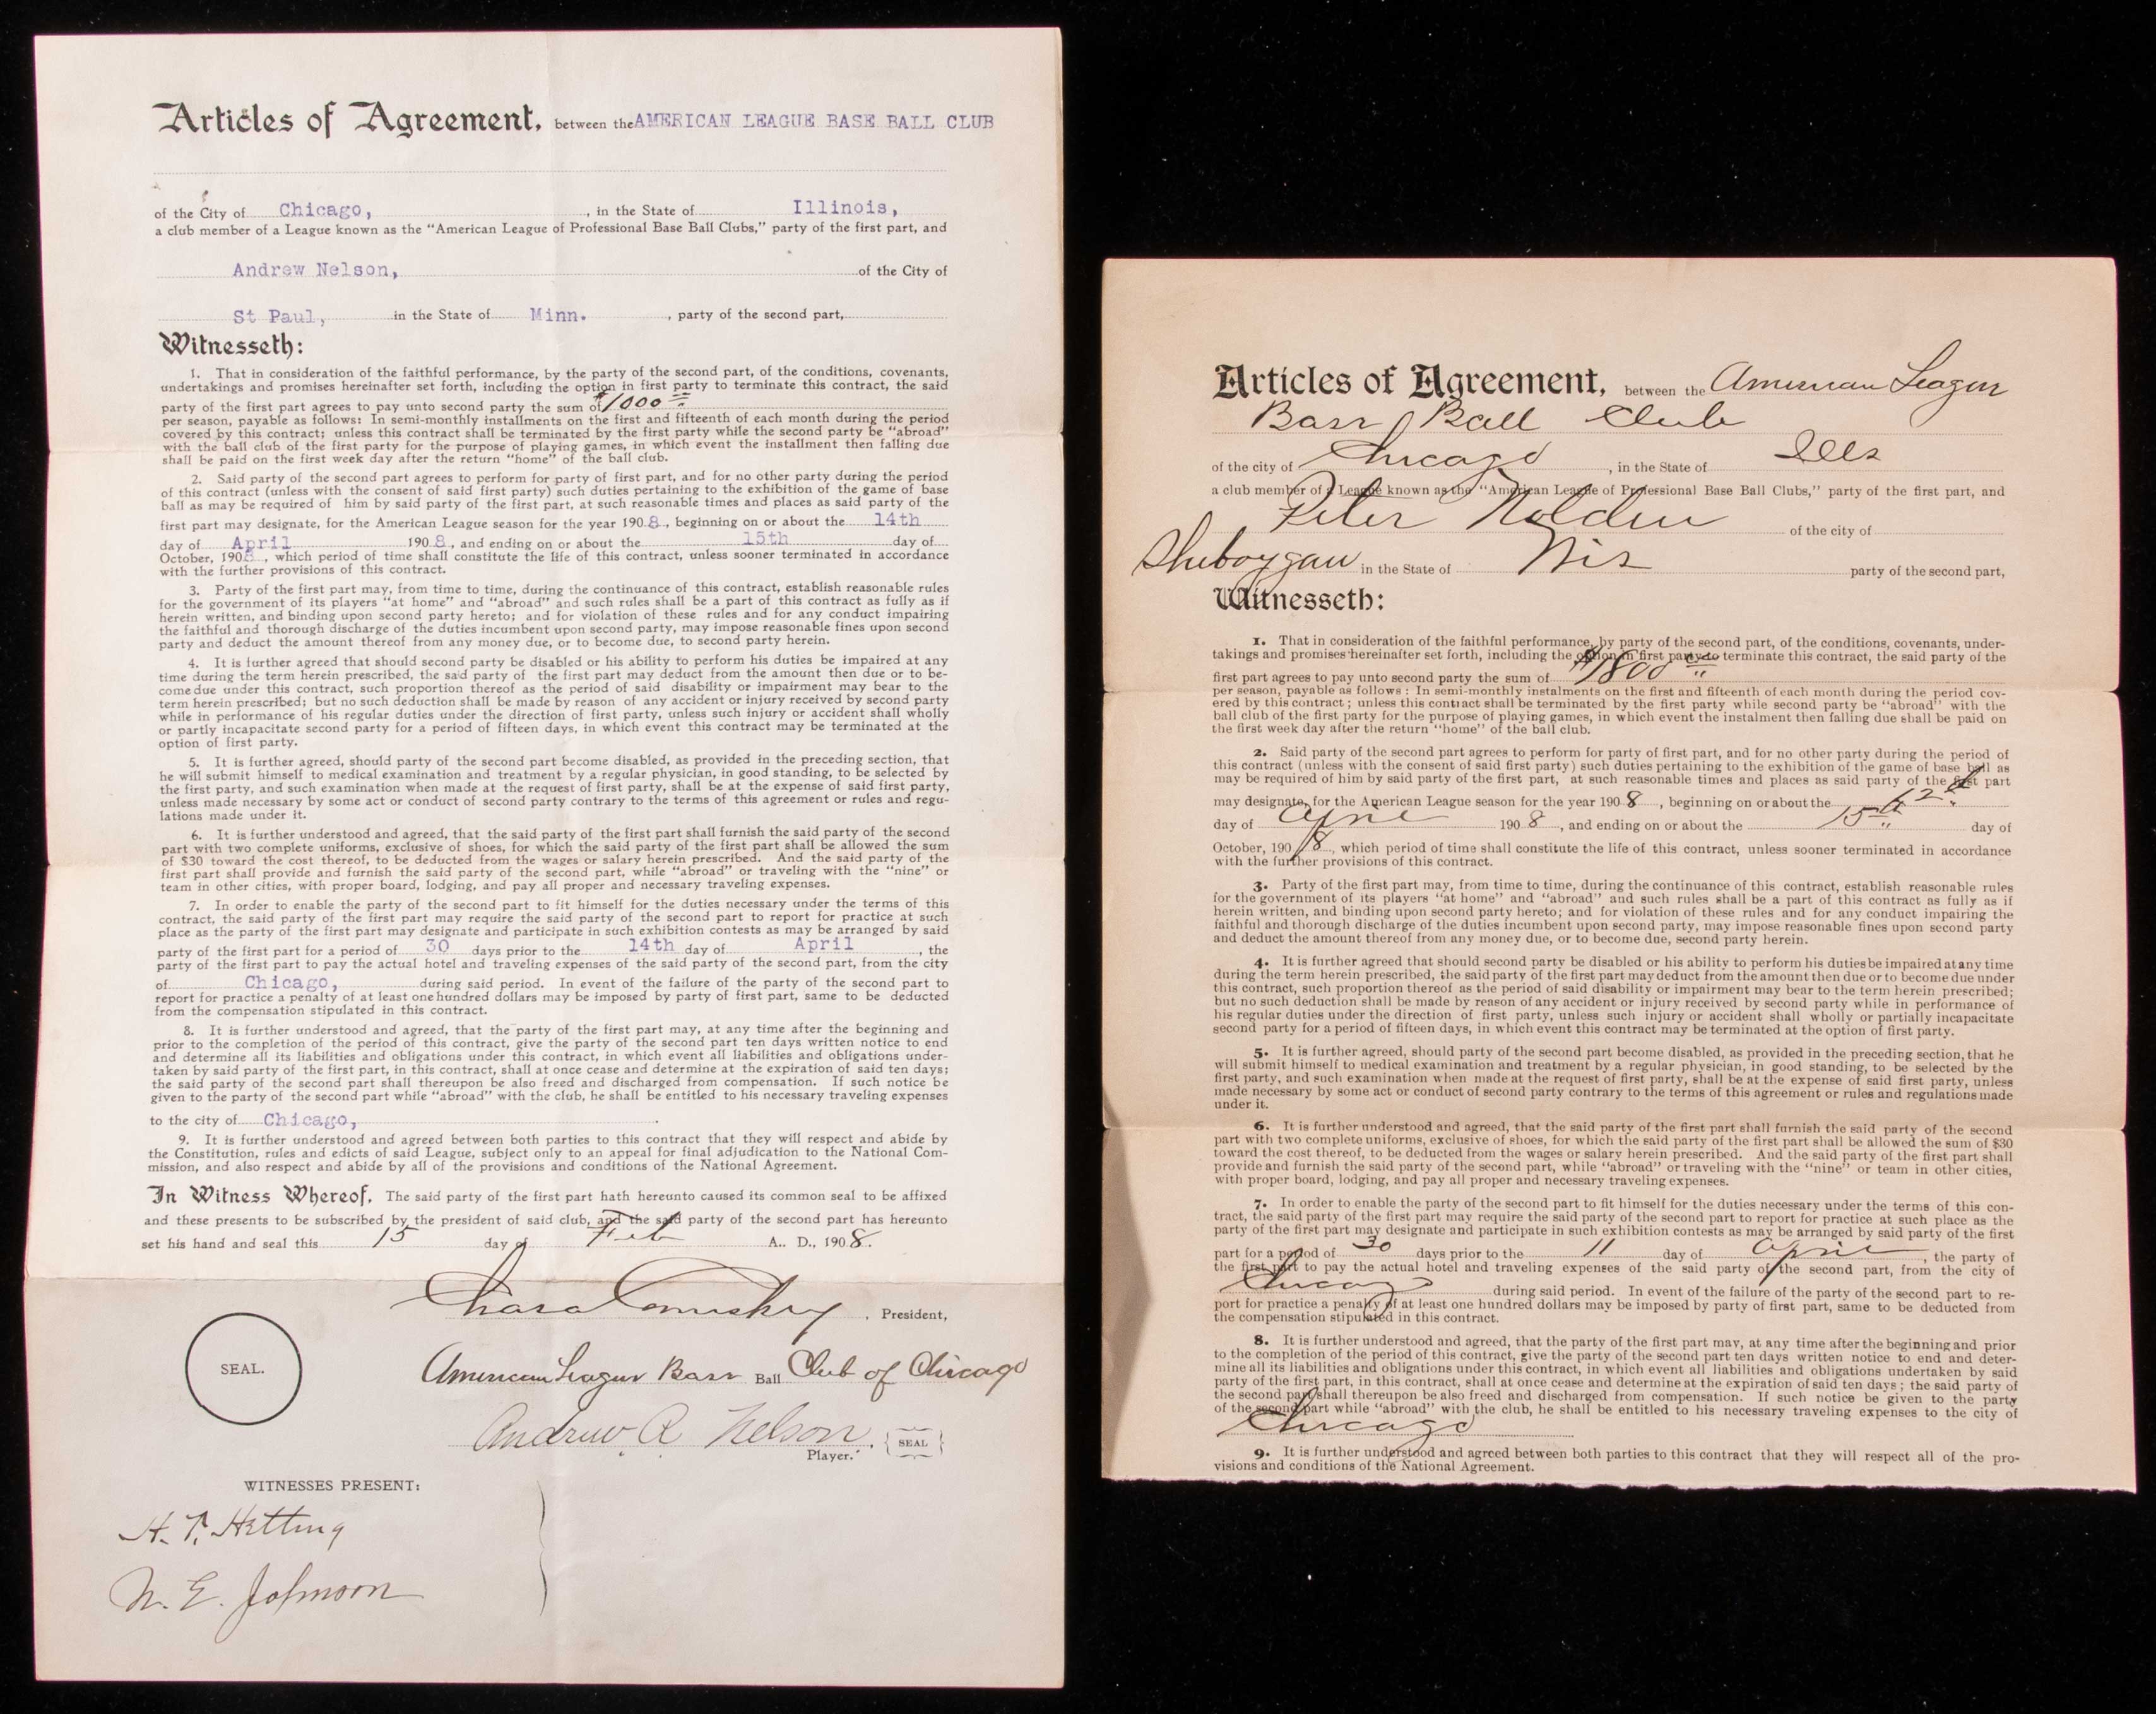 Articles of Agreement, between the AMERICAN LEAGUE BASE BALL CLUB
of the City of Chicago, , in the State of Illinois,
a club member of a League known as the “American League of Professional Base Ball Clubs,” party of the first part, and
Andrew Nelson, of the City of
St Paul, in the State of Minn. , party of the second part,
Witnesseth:
1. That in consideration of the faithful performance, by the party of the second part, of the conditions, covenants,
undertakings and promises hereinafter set forth, including the option in first party to terminate this contract, the said
party of the first part agrees to pay unto second party the sum of $1000
per season, payable as follows: In semi-monthly installments on the first and fifteenth of each month during the period
covered by this contract; unless this contract shall be terminated by the first party while the second party be “abroad”
with the ball club of the first party for the purpose of playing games, in which event the installment then falling due
shall be paid on the first week day after the return “home” of the ball club.
2. Said party of the second part agrees to perform for party of first part, and for no other party during the period
of this contract (unless with the consent of said first party) such duties pertaining to the exhibition of the game of base
ball as may be required of him by said party of the first part, at such reasonable times and places as said party of the
first part may designate, for the American League season for the year 1908, beginning on or about the 14th
day of April 1908, and ending on or about the 15th day of
October, 1908, which period of time shall constitute the life of this contract, unless sooner terminated in accordance
with the further provisions of this contract.
3. Party of the first part may, from time to time, during the continuance of this contract, establish reasonable rules
for the government of its players “at home” and “abroad” and such rules shall be a part of this contract as fully as if
herein written, and binding upon second party hereto; and for violation of these rules and for any conduct impairing
the faithful and thorough discharge of the duties incumbent upon second party, may impose reasonable fines upon second
party and deduct the amount thereof from any money due, or to become due, to second party herein.
4. It is further agreed that should second party be disabled or his ability to perform his duties be impaired at any
time during the term herein prescribed, the said party of the first part may deduct from the amount then due or to be-
come due under this contract, such proportion thereof as the period of said disability or impairment may bear to the
term herein prescribed; but no such deduction shall be made by reason of any accident or injury received by second party
while in performance of his regular duties under the direction of first party, unless such injury or accident shall wholly
or partly incapacitate second party for a period of fifteen days, in which event this contract may be terminated at the
option of first party.
5. It is further agreed, should party of the second part become disabled, as provided in the preceding section, that
he will submit himself to medical examination and treatment by a regular physician, in good standing, to be selected by
the first party, and such examination when made at the request of first party, shall be at the expense of said first party,
unless made necessary by some act or conduct of second party contrary to the terms of this agreement or rules and regu-
lations made under it.
6. It is further understood and agreed, that the said party of the first part shall furnish the said party of the second
part with two complete uniforms, exclusive of shoes, for which the said party of the first part shall be allowed the sum
of $30 toward the cost thereof, to be deducted from the wages or salary herein prescribed. And the said party of the
first part shall provide and furnish the said party of the second part, while “abroad” or traveling with the “nine” or
team in other cities, with proper board, lodging, and pay all proper and necessary traveling expenses.
7. In order to enable the party of the second part to fit himself for the duties necessary under the terms of this
contract, the said party of the first part may require the said party of the second part to report for practice at such
place as the party of the first part may designate and participate in such exhibition contests as may be arranged by said
party of the first part for a period of 30 days prior to the 14th day of April , the
party of the first part to pay the actual hotel and traveling expenses of the said party of the second part, from the city
of Chicago, during said period. In event of the failure of the party of the second part to
report for practice a penalty of at least one hundred dollars may be imposed by party of first part, same to be deducted
from the compensation stipulated in this contract.
8. It is further understood and agreed, that the party of the first part may, at any time after the beginning and
prior to the completion of the period of this contract, give the party of the second part ten days written notice to end
and determine all its liabilities and obligations under this contract, in which event all liabilities and obligations under-
taken by said party of the first part, in this contract, shall at once cease and determine at the expiration of said ten days;
the said party of the second part shall thereupon be also freed and discharged from compensation. If such notice be
given to the party of the second part while “abroad” with the club, he shall be entitled to his necessary traveling expenses
to the city of Chicago,
9. It is further understood and agreed between both parties to this contract that they will respect and abide by
the Constitution, rules and edicts of said League, subject only to an appeal for final adjudication to the National Com-
mission, and also respect and abide by all of the provisions and conditions of the National Agreement.
In Witness Whereof, The said party of the first part hath hereunto caused its common seal to be affixed
and these presents to be subscribed by the president of said club, and the said party of the second part has hereunto
set his hand and seal this 15 day of Feb A.. D., 1908.
Chas A Comiskey , President,
SEAL.
American League Base Ball Club of Chicago
Andrew A Nelson. { SEAL }
Player.
WITNESSES PRESENT:
H. T. Hetting
N. E. Johnson
Articles of Agreement, between the American League
Base Ball Club
of the city of Chicago , in the State of Ills
a club member of a League known as the “American League of Professional Base Ball Clubs,” party of the first part, and
Peter Nolden of the city of
Sheboygan in the State of Wis party of the second part,
Witnesseth:
1. That in consideration of the faithful performance, by party of the second part, of the conditions, covenants, under-
takings and promises hereinafter set forth, including the option in first party to terminate this contract, the said party of the
first part agrees to pay unto second party the sum of $1800
per season, payable as follows: In semi-monthly instalments on the first and fifteenth of each month during the period cov-
ered by this contract; unless this contract shall be terminated by the first party while second party be “abroad” with the
ball club of the first party for the purpose of playing games, in which event the instalment then falling due shall be paid on
the first week day after the return “home” of the ball club.
2. Said party of the second part agrees to perform for party of first part, and for no other party during the period of
this contract (unless with the consent of said first party) such duties pertaining to the exhibition of the game of base ball as
may be required of him by said party of the first part, at such reasonable times and places as said party of the first part
may designate, for the American League season for the year 1908 , beginning on or about the
day of 1908 , and ending on or about the 15th day of
October, 1908 , which period of time shall constitute the life of this contract, unless sooner terminated in accordance
with the further provisions of this contract.
3. Party of the first part may, from time to time, during the continuance of this contract, establish reasonable rules
for the government of its players “at home” and “abroad” and such rules shall be a part of this contract as fully as if
herein written, and binding upon second party hereto; and for violation of these rules and for any conduct impairing the
faithful and thorough discharge of the duties incumbent upon second party, may impose reasonable fines upon second party
and deduct the amount thereof from any money due, or to become due, second party herein.
4. It is further agreed that should second party be disabled or his ability to perform his duties be impaired at any time
during the term herein prescribed, the said party of the first part may deduct from the amount then due or to become due under
this contract, such proportion thereof as the period of said disability or impairment may bear to the term herein prescribed;
but no such deduction shall be made by reason of any accident or injury received by second party while in performance of
his regular duties under the direction of first party, unless such injury or accident shall wholly or partially incapacitate
second party for a period of fifteen days, in which event this contract may be terminated at the option of first party.
5. It is further agreed, should party of the second part become disabled, as provided in the preceding section, that he
will submit himself to medical examination and treatment by a regular physician, in good standing, to be selected by the
first party, and such examination when made at the request of first party, shall be at the expense of said first party, unless
made necessary by some act or conduct of second party contrary to the terms of this agreement or rules and regulations made
under it.
6. It is further understood and agreed, that the said party of the first part shall furnish the said party of the second
part with two complete uniforms, exclusive of shoes, for which the said party of the first part shall be allowed the sum of $30
toward the cost thereof, to be deducted from the wages or salary herein prescribed. And the said party of the first part shall
provide and furnish the said party of the second part, while “abroad” or traveling with the “nine” or team in other cities,
with proper board, lodging, and pay all proper and necessary traveling expenses.
7. In order to enable the party of the second part to fit himself for the duties necessary under the terms of this con-
tract, the said party of the first part may require the said party of the second part to report for practice at such place as the
party of the first part may designate and participate in such exhibition contests as may be arranged by said party of the first
part for a period of 30 days prior to the 11 day of April , the party of
the first part to pay the actual hotel and traveling expenses of the said party of the second part, from the city of
Chicago during said period. In event of the failure of the party of the second part to re-
port for practice a penalty of at least one hundred dollars may be imposed by party of first part, same to be deducted from
the compensation stipulated in this contract.
8. It is further understood and agreed, that the party of the first part may, at any time after the beginning and prior
to the completion of the period of this contract, give the party of the second part ten days written notice to end and deter-
mine all its liabilities and obligations under this contract, in which event all liabilities and obligations undertaken by said
party of the first part, in this contract, shall at once cease and determine at the expiration of said ten days; the said party of
the second part shall thereupon be also freed and discharged from compensation. If such notice be given to the party
of the second part while “abroad” with the club, he shall be entitled to his necessary traveling expenses to the city of
Chicago
9. It is further understood and agreed between both parties to this contract that they will respect all of the pro-
visions and conditions of the National Agreement.